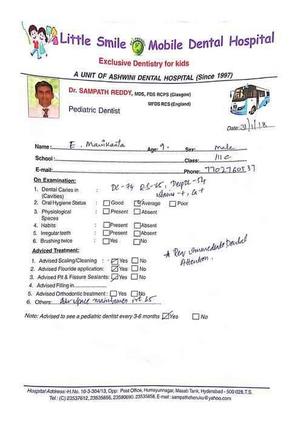 Little Smile Mobile Dental Hospital
Exclusive Dentistry for kids
A UNIT OF ASHWINI DENTAL HOSPITAL (Since 1997)
Dr. SAMPATH REDDY, MDS, FDS RCPS (Glasgow)
MFDS RCS (England)
Pediatric Dentist
Date:
Name : E. Age: 9. Sex: Male
School : Class: III C
E-mail: Phone:
On Examination:
1. Dental Caries in : (Cavities)
2. Oral Hygiene Status : Good Average Poor
3. Physiological Spaces : Present Absent
4. Habits : Present Absent
5. Irregular teeth : Present Absent
6. Brushing twice : Yes No
Immediate Dental
Attention.
Advised Treatment:
1. Advised Scaling/Cleaning : Yes No
2. Advised Fluoride application: Yes No
3. Advised Pit & Fissure Sealants: Yes No
4. Advised Filling in
5. Advised Orthodontic treatment : Yes No
6. Others: space maintainer 65
Note: Advised to see a pediatric dentist every 3-6 months Yes No
Hospital Address: H.No. 10-3-304/13, Opp: Post Office, Humayunnagar, Masab Tank, Hyderabad - 500 028.T.S.
Tel: (C) 23537612, 23535856, 23590690, 23535858, E-mail: